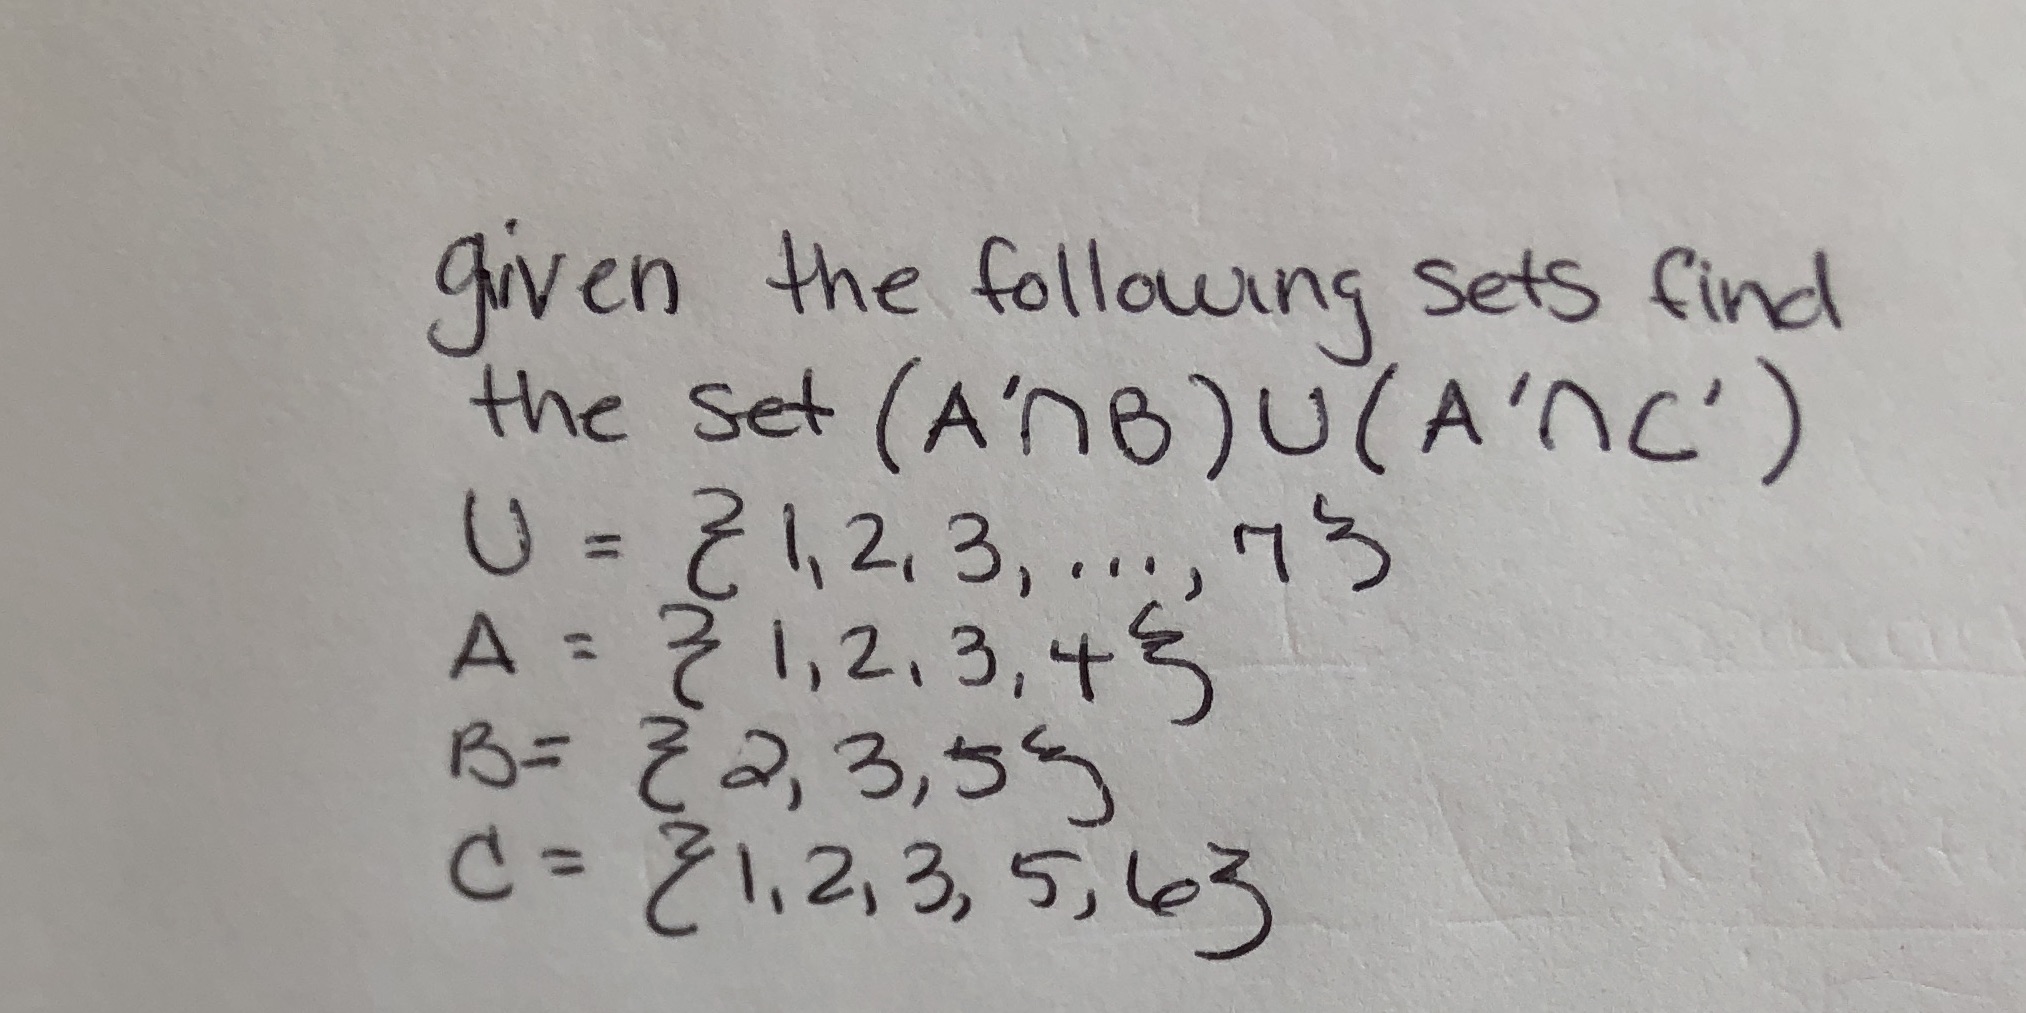 given the following sets find
the set (A'∩B)∪(A'∩C')
U = {1, 2, 3, ..., 7}
A = {1, 2, 3, 4}
B = {2, 3, 5}
C = {1, 2, 3, 5, 6}